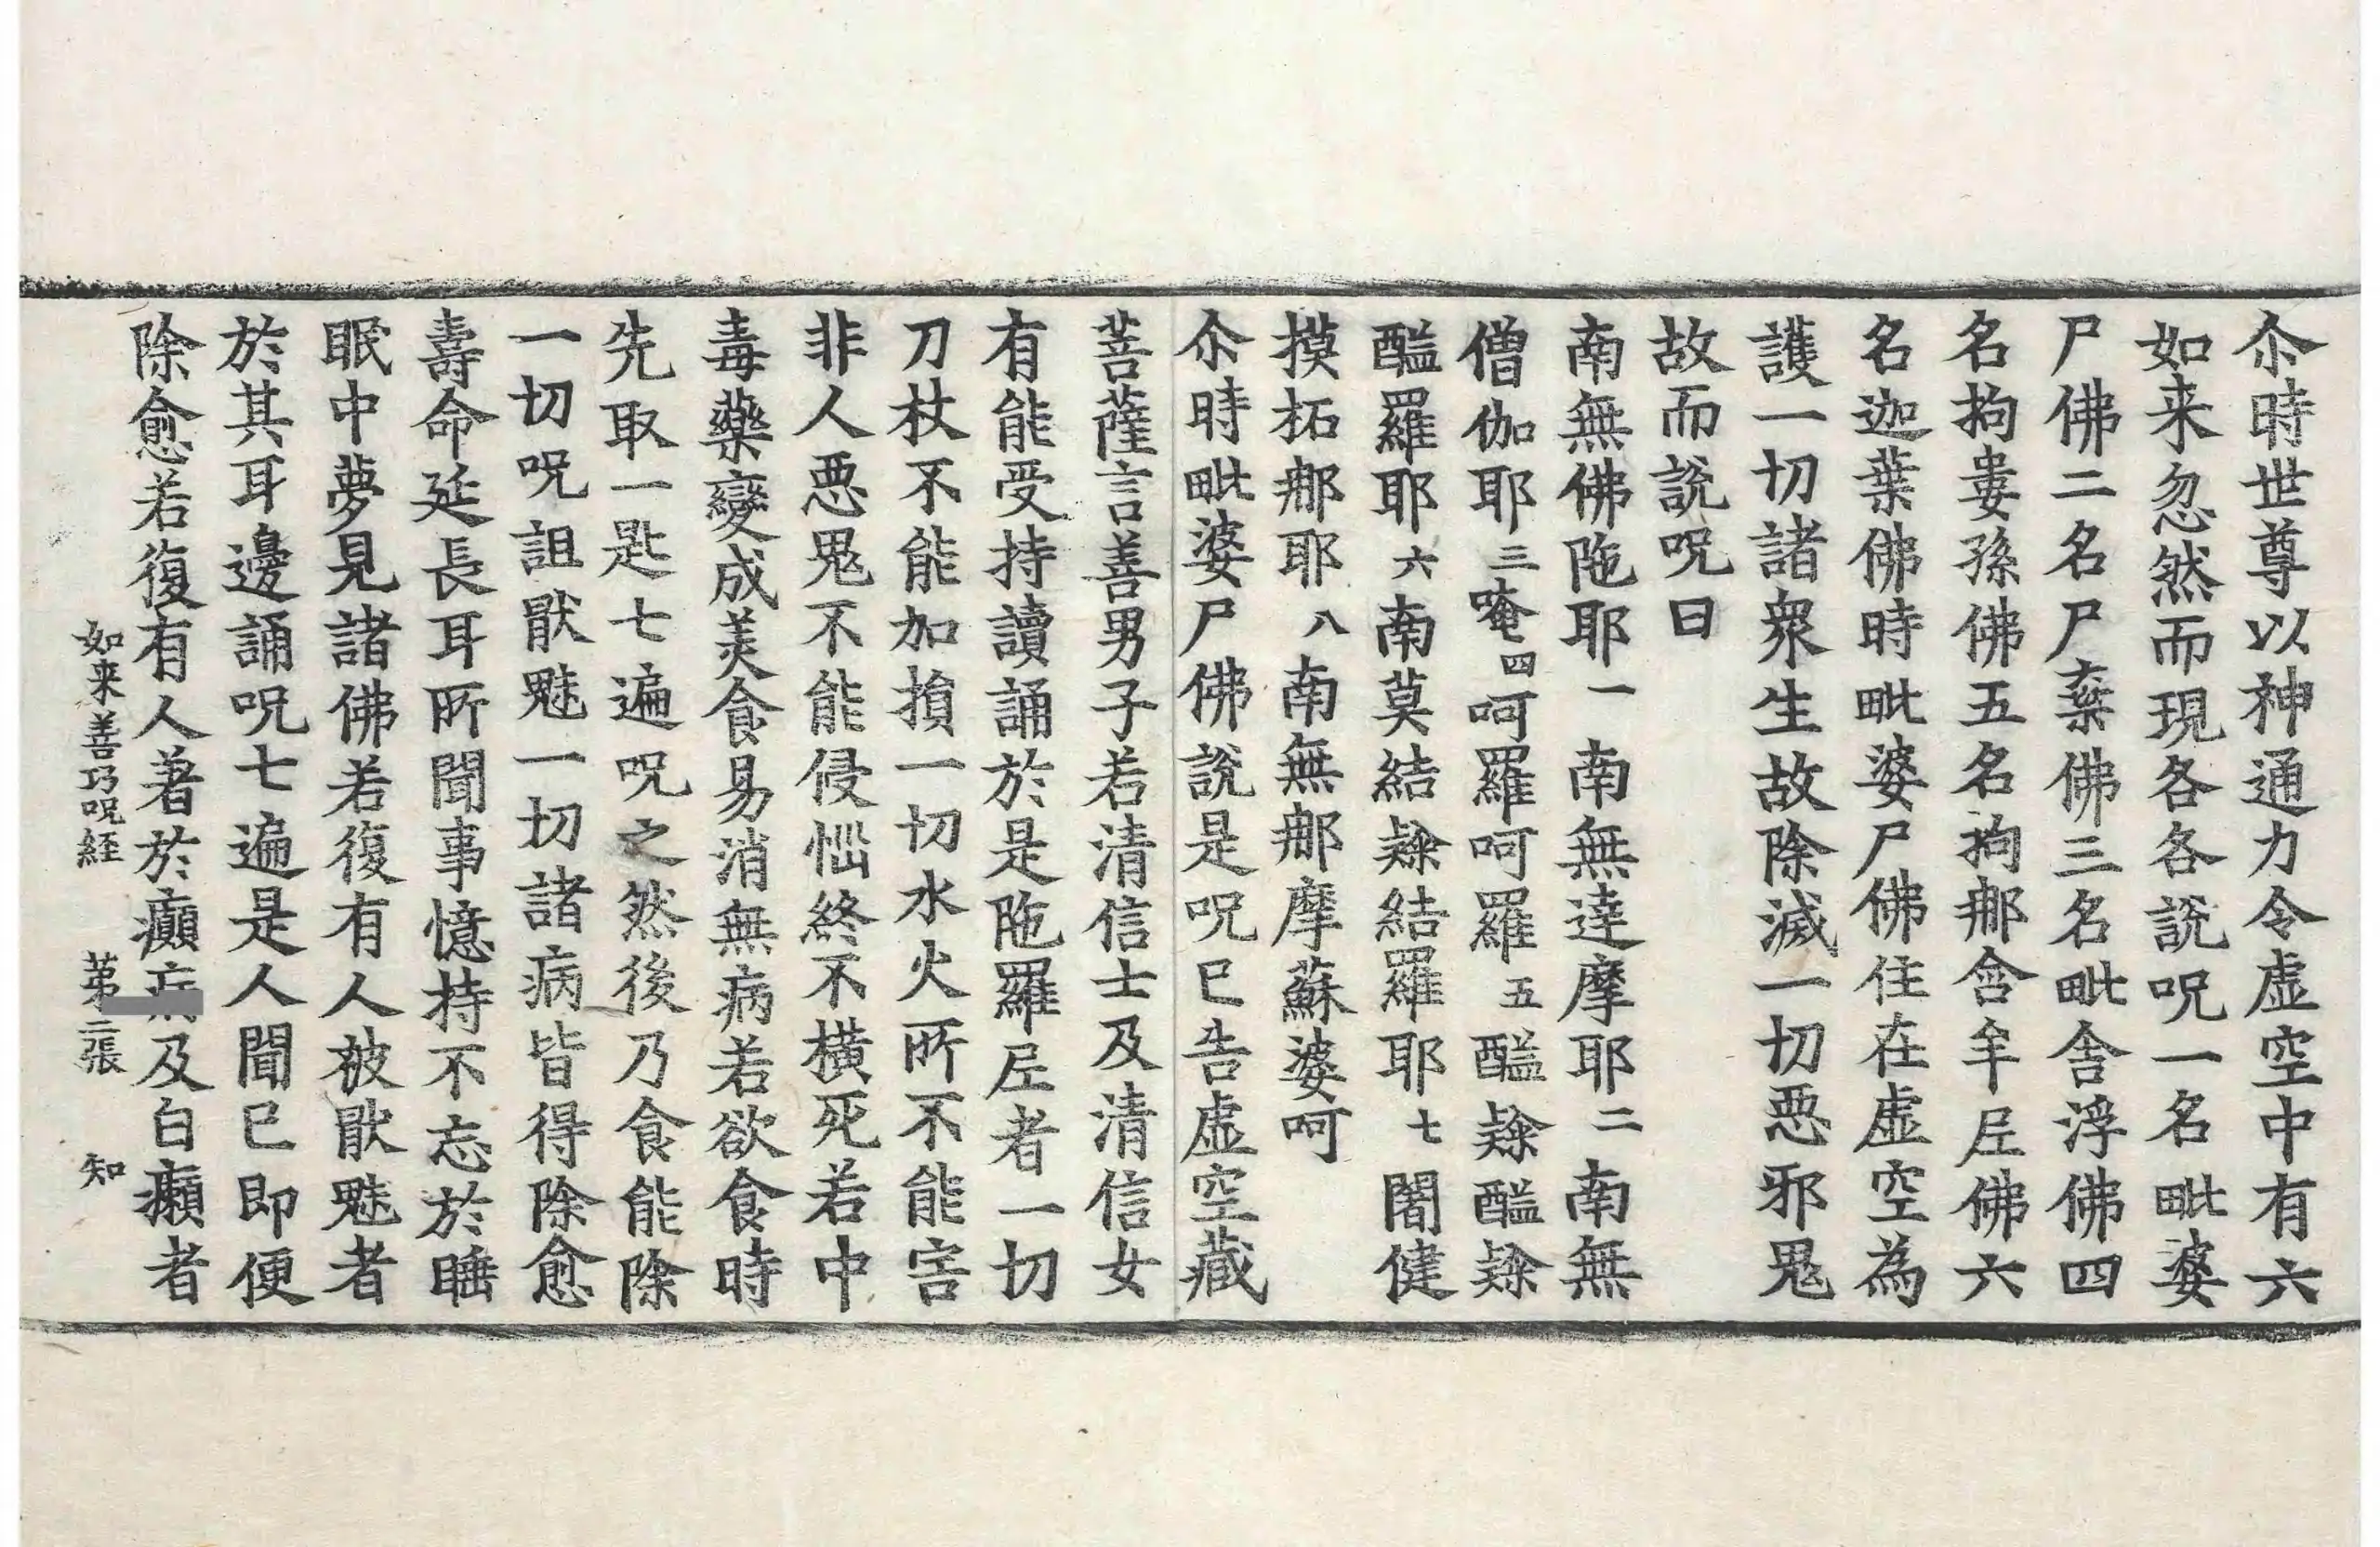 尒時世尊以神通力令虛空中有六
如来忽然而現各各說呪一名毗婆
尸佛二名尸棄佛三名毗舍浮佛四
名拘婁孫佛五名拘郍含牟𡰱佛六
名迦葉佛時毗婆尸佛住在虛空為
護一切諸衆生故除滅一切惡邪鬼
故而說呪曰
南無佛陁耶一南無達摩耶二南無
僧伽耶三唵四呵羅呵羅五醯𨽻醯𨽻
醯羅耶六南莫結𨽻結羅耶七闍健
摸柘郍耶八南無郍摩蘇婆呵
尒時毗婆尸佛說是呪已告虛空藏
菩薩言善男子若清信士及清信女
有能受持讀誦於是陁羅𡰱者一切
刀杖不能加損一切水火所不能害
非人惡鬼不能侵惱終不橫死若中
毒藥變成美食易消無病若欲食時
先取一匙七遍呪之然後乃食能除
一切呪詛猒魅一切諸病皆得除愈
壽命延長耳所聞事憶持不忘於睡
眠中夢見諸佛若復有人被猒魅者
於其耳邊誦呪七遍是人聞已即便
除愈若復有人著於癲及白癩者
如来善巧呪経 苐二張 知